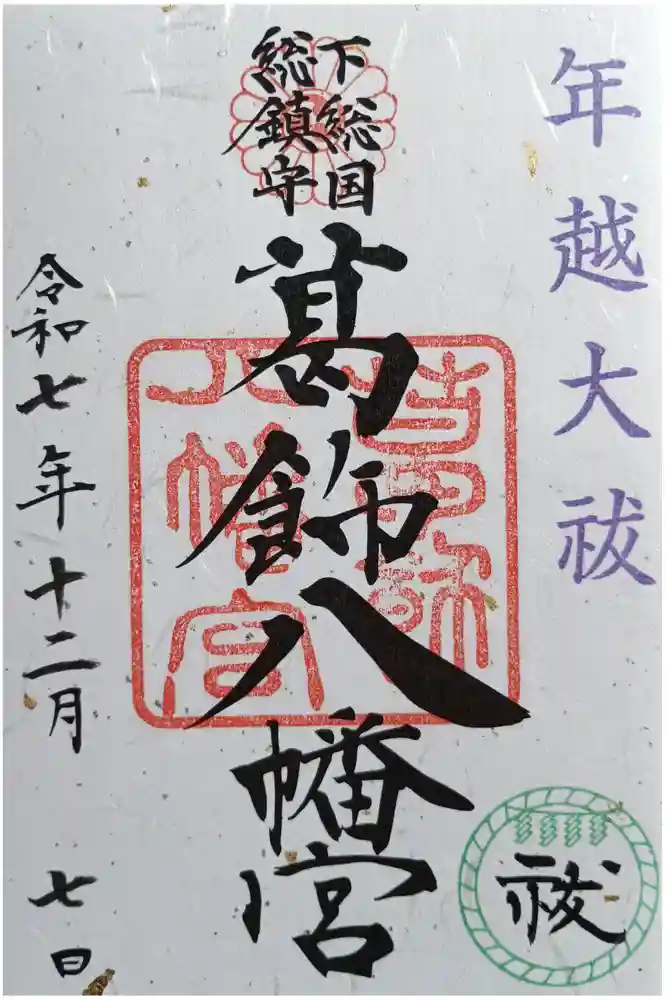 年越大祓
下総国
総鎮守
葛飾八幡宮
葛飾
八幡宮
祓
令和七年十二月七日